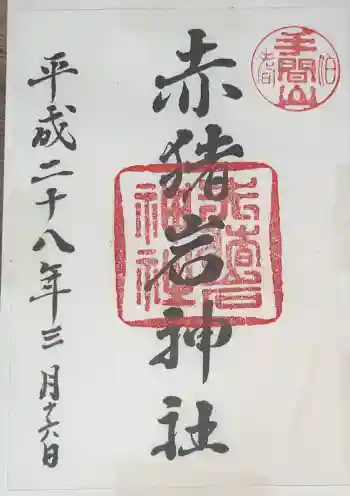 手間山
赤猪岩神社
赤猪岩神社
平成二十八年三月十六日